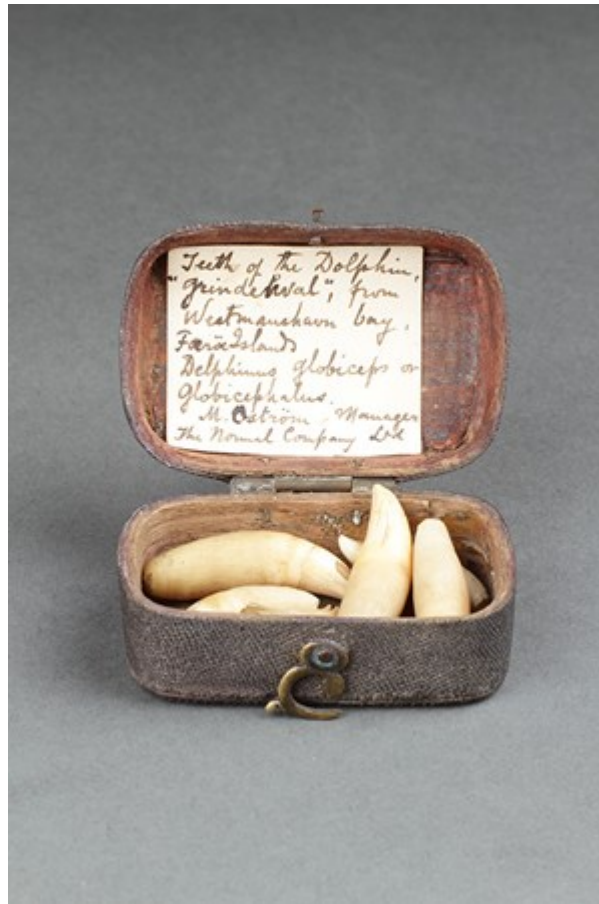 Teeth of the Dolphin,
"grindehval", from
Westmanshavn bay,
Færö Islands
Delphinus globiceps or
Globicephalus.
M. Oström, Manager
The Normal Company Ltd